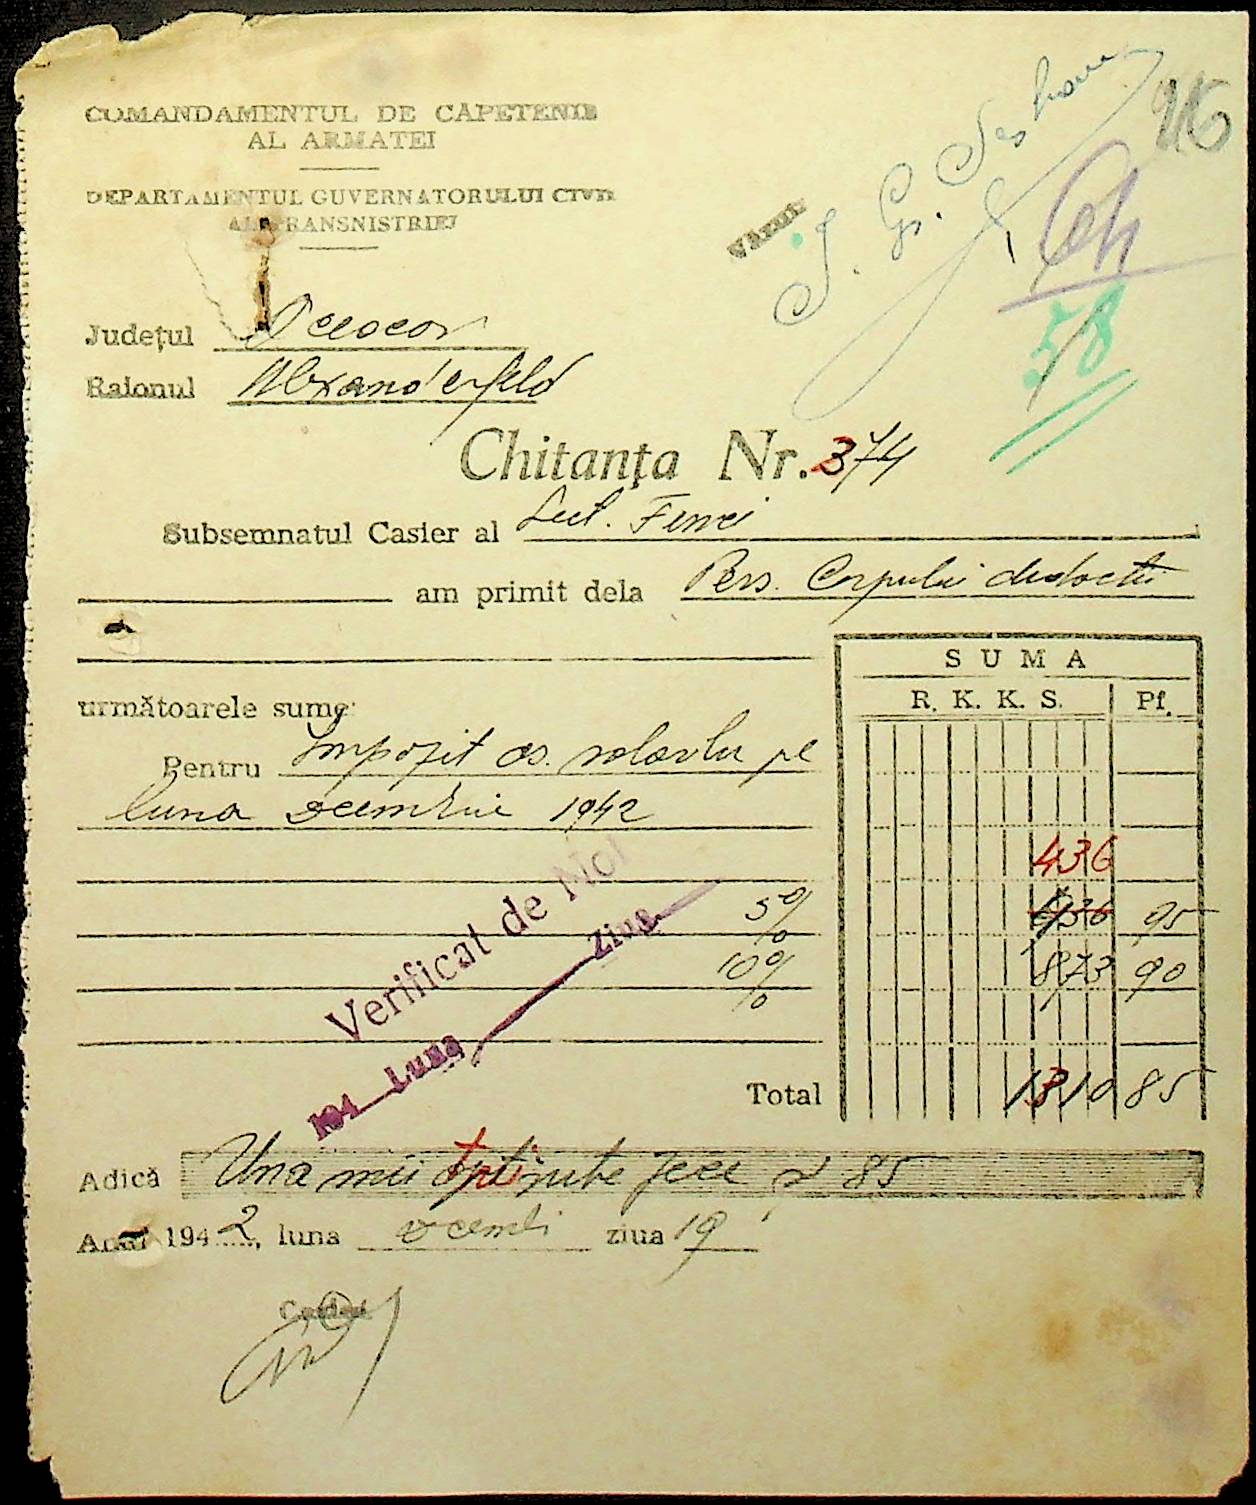 COMANDAMENTUL DE CAPETENIE
AL ARMATEI
DEPARTAMENTUL GUVERNATORULUI CIVIL
AL TRANSNISTRIEI
Văzut
916
58
Județul Ococov
Raionul Alxanderfeld
Chitanța Nr. 374
Subsemnatul Casier al Sect. Finci
am primit dela Pers. Corpului didactic
următoarele sume:
SUMA
R. K. K. S. Pf.
Pentru Impozit as. salarlu pe
luna Decembrie 1942
436
5% 436 95
10% 873 90
Total 1310 85
Verificat de Noi
194 Luna Ziua
Adică Una mii trei sute zece și 85
Anul 1942, luna Decembr ziua 19
Casier